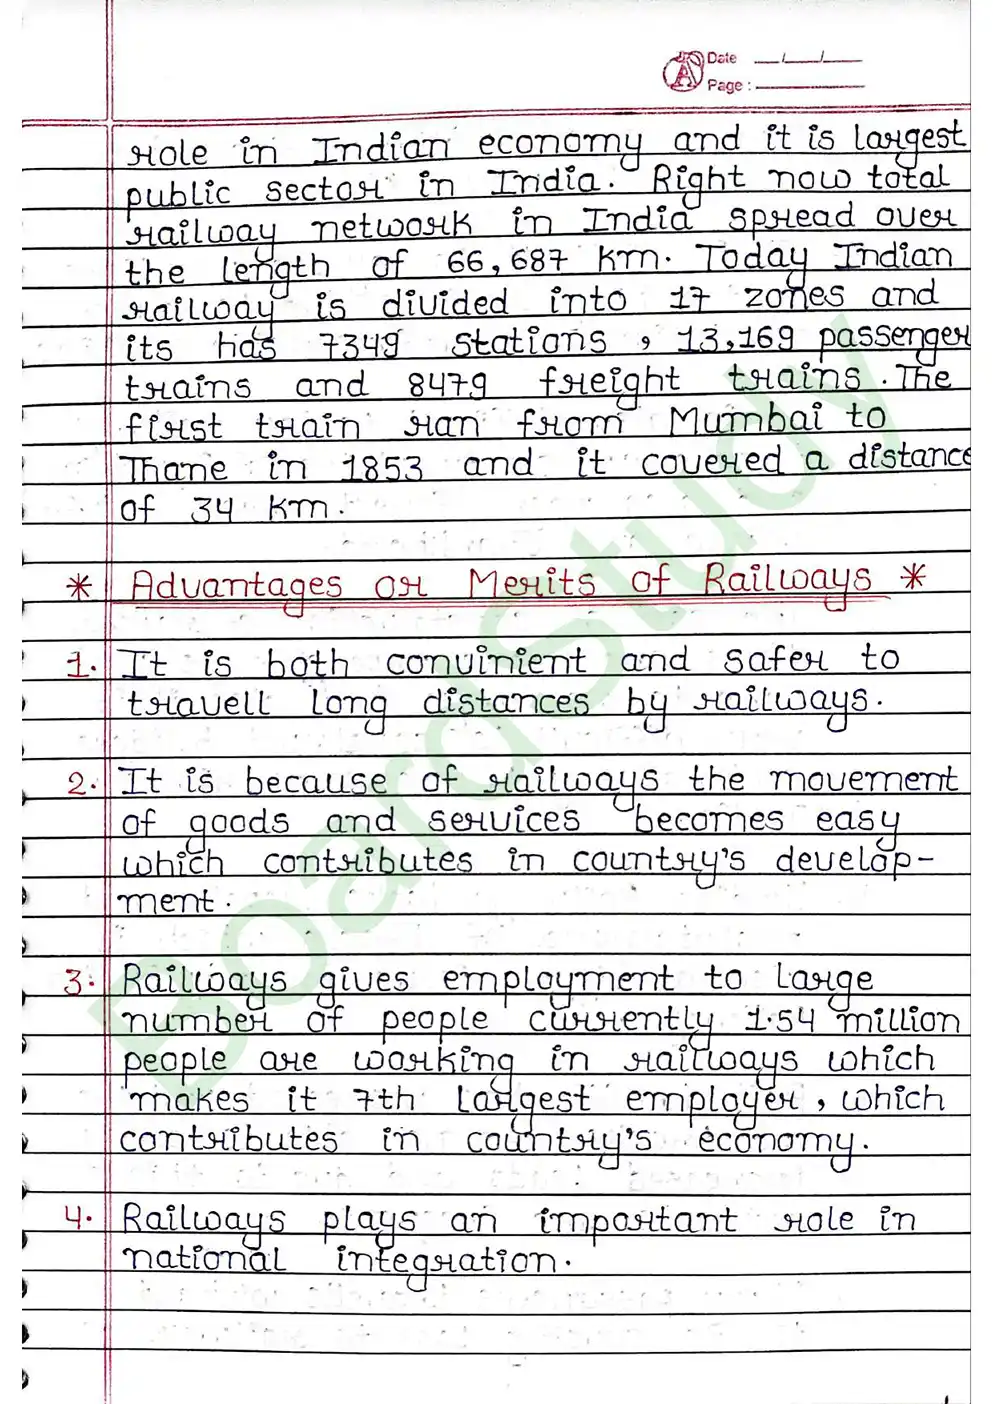 Date __/__/__
Page :
role in Indian economy and it is largest
public sector in India. Right now total
railway network in India spread over
the length of 66,687 km. Today Indian
railway is divided into 17 zones and
its has 7349 stations, 13,169 passenger
trains and 8479 freight trains. The
first train ran from Mumbai to
Thane in 1853 and it covered a distance
of 34 km.
* Advantages or Merits of Railways *
1. It is both convinient and safer to
travell long distances by railways.
2. It is because of railways the movement
of goods and services becomes easy
which contributes in country's develop-
ment.
3. Railways gives employment to large
number of people currently 1.54 million
people are working in railways which
makes it 7th largest employer, which
contributes in country's economy.
4. Railways plays an important role in
national integration.
BoardStudy